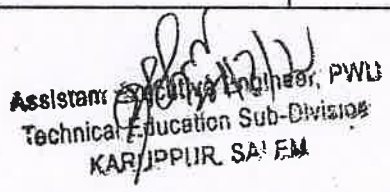 Assistant Executive Engineer, PWD
Technical Education Sub-Division
KARUPPUR, SALEM